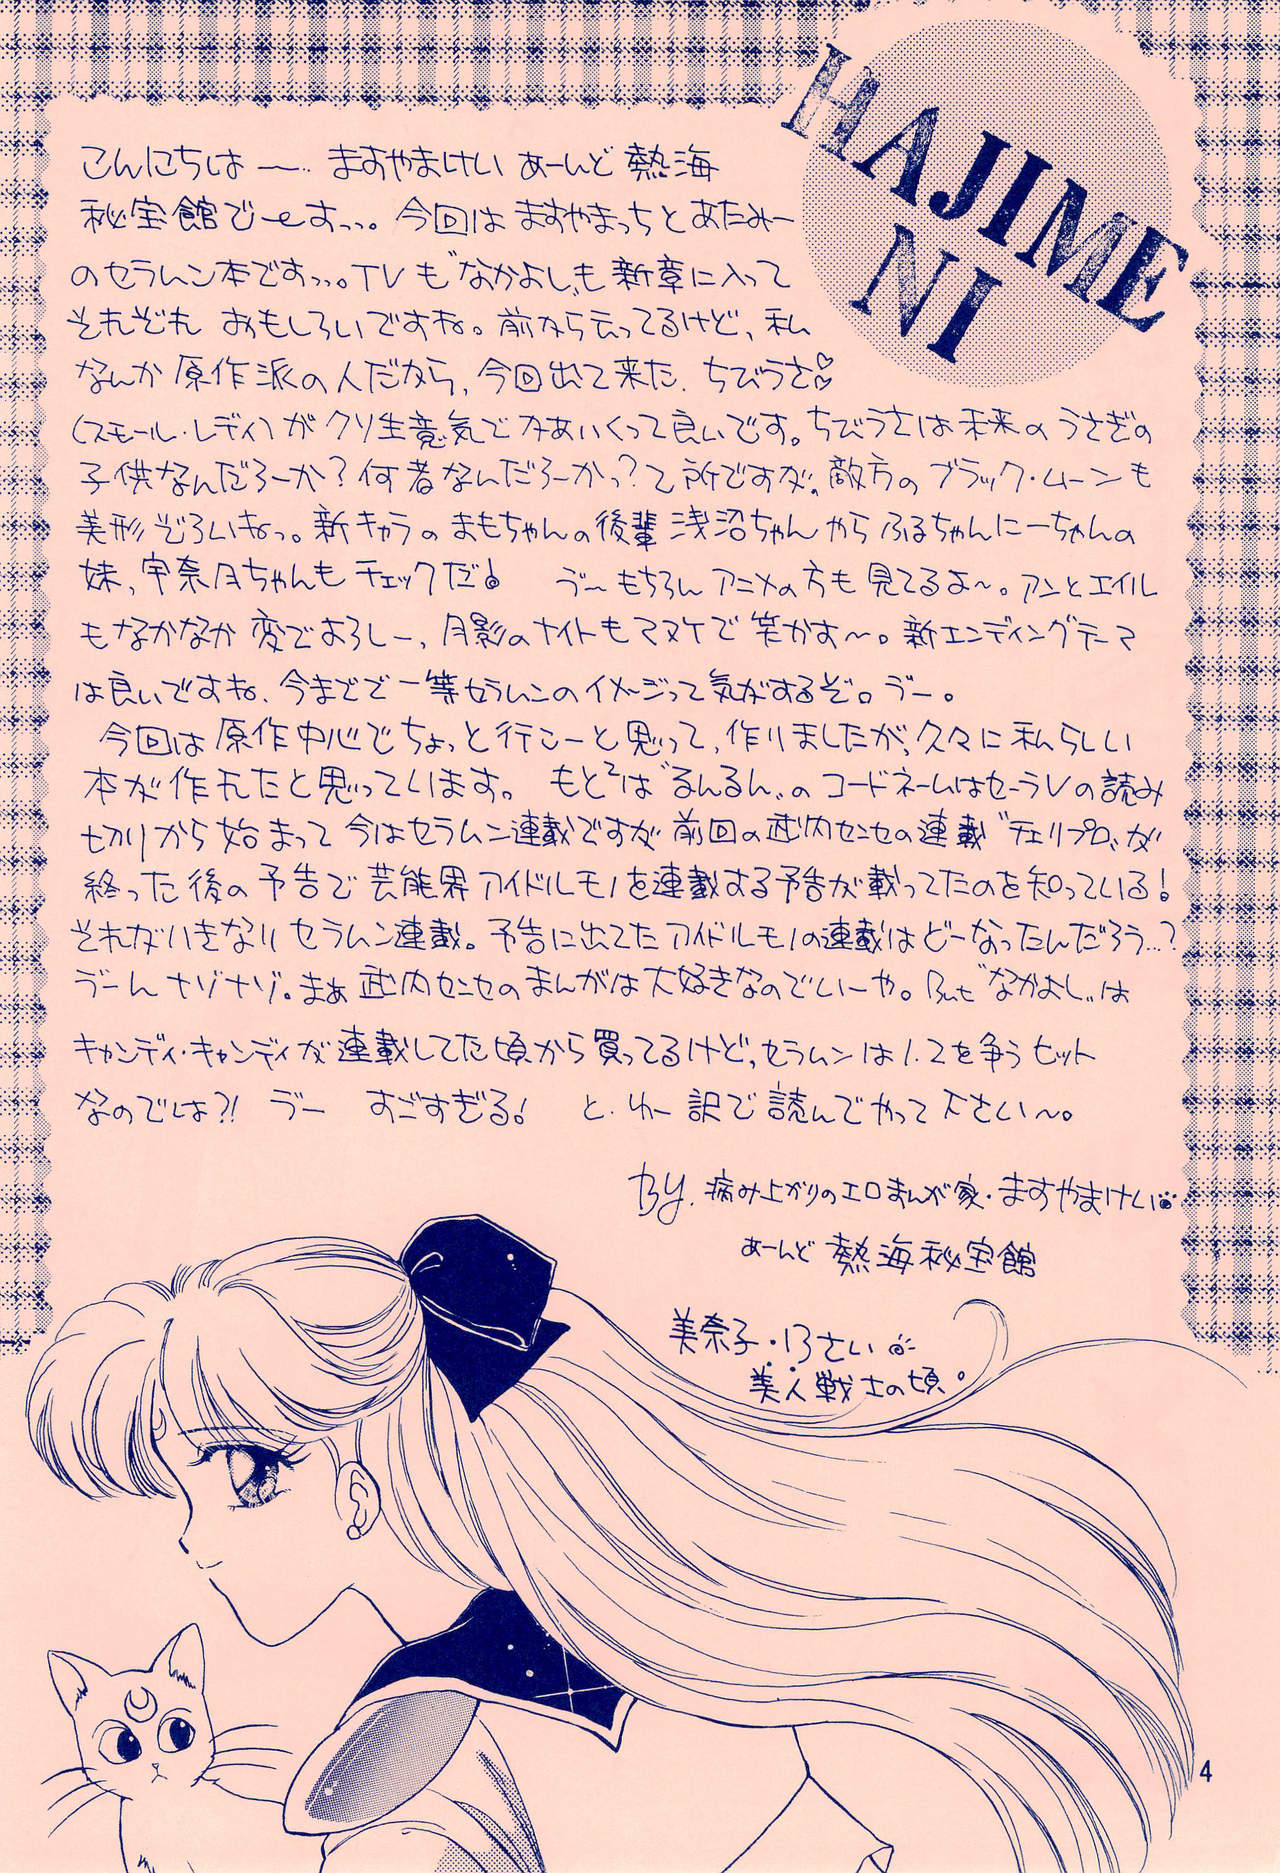 HAJIME
NI
こんにちは〜… ますやまけい あーんど 熱海
秘宝館でーすっっ。今回は ますやまっちと あたみー
のセラムン本ですっっ。TVも〝なかよし〟も 新章に入って
それぞれ おもしろいですね。前から云ってるけど、私
なんか 原作派の人だから、今回出て来た、ちびうさ♡♡
(スモール・レディ)が クソ生意気で かあいくって良いです。ちびうさは未来のうさぎの
子供なんだろーか?何者なんだろーかっ?て所ですが、敵方の ブラック・ムーンも
美形ぞろいねっ。新キャラの まもちゃんの後輩 浅沼ちゃん やら ふるちゃんにーちゃんの
妹、宇奈月ちゃんも チェックだ! う〜 もちろん アニメの方も見てるよ〜。アンとエイル
もなかなか 変でよろしー、月影のナイトもマヌケで 笑かす〜。新エンディングテーマ
は良いですね、今までで一等セラムンのイメージって気がするぞ。うー。
今回は 原作中心でちょっと行こーと思って、作りましたが、久々に私らしい
本が作れたと思っています。 もともとは〝るんるん〟の コードネームはセーラVの読み
切りから始まって 今はセラムン連載ですが 前回の武内センセの連載〝チェリプロ〟が
終った後の予告で芸能界アイドルモノを連載する予告が載ってたのを知っている!
それがいきなり セラムン連載。予告に出てた アイドルモノの連載はどーなったんだろう…?
うーん ナゾナゾ。まぁ 武内センセのまんがは大好きなのでいーや。But〝なかよし〟は
キャンディ・キャンディが連載してた頃から買ってるけど、セラムンは1.2を争うヒット
なのでは?! うー すごすぎる! と、ゆー訳で読んでやって下さい〜。
By. 病み上がりのエロまんが家・ますやまけい
あーんど 熱海秘宝館
美奈子・13さい
美人戦士の頃。
4